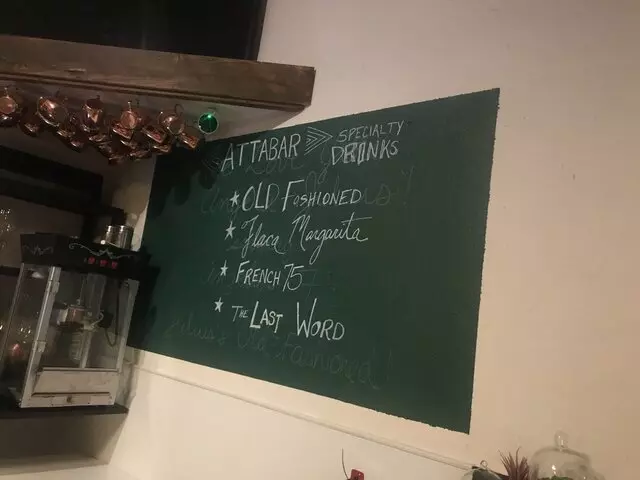 ATTABAR SPECIALTY DRINKS
OLD FASHIONED
Flaca Margarita
FRENCH 75
THE LAST WORD